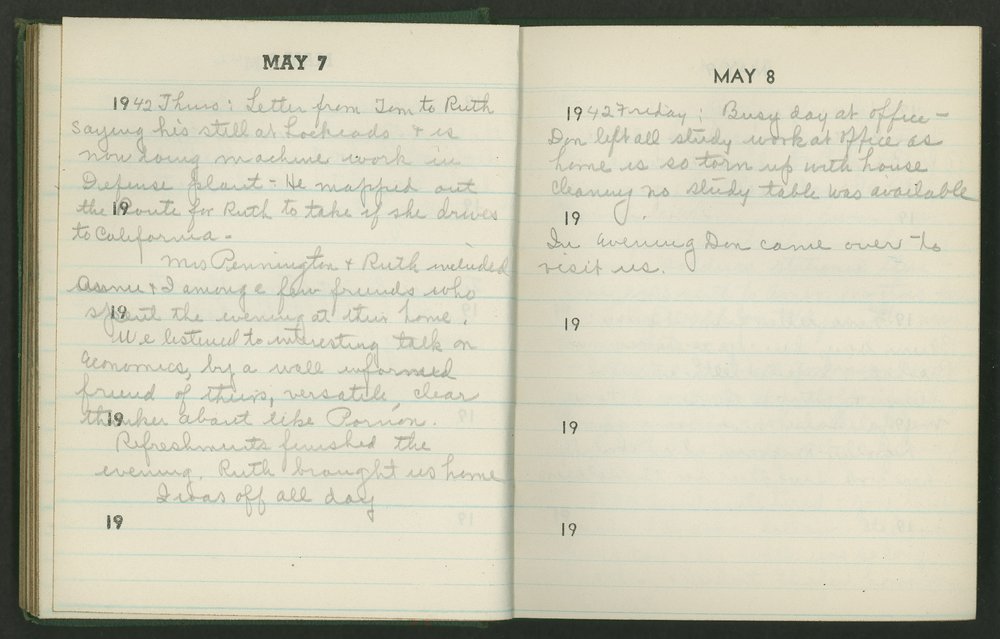 MAY 7
1942 Thurs: Letter from Tom to Ruth
saying his still at Lockeads & is
now doing machine work in
Defense plant - He mapped out
the Route for Ruth to take if she drives
to California -
Mrs Pennington & Ruth included
& I among a few friends who
19
spent the evening at their home.
We listened to interesting talk on
economics, by a well informed
friend of theirs, versatile, clear
thinker about like
19
Refreshments finished the
evening. Ruth brought us home
I was off all day
19
MAY 8
1942 Friday: Busy day at office -
Don left all study work at office as
home is so torn up with house
cleaning no study table was available
19
In evening Don came over to
visit us.
19
19
19